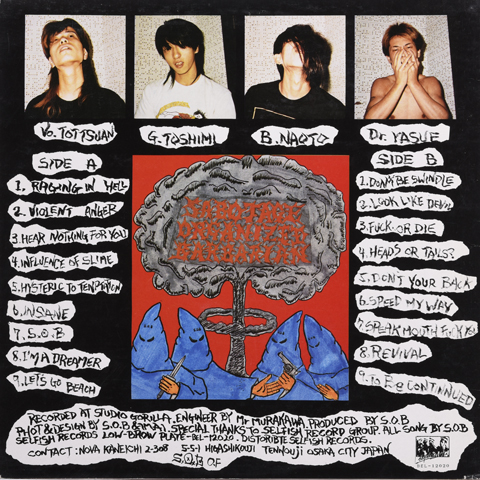 Vo. TOTTSUAN
G. TOSHIMI
B. NAOTO
Dr. YASUE
SIDE A
1. RAGING IN HELL
2. VIOLENT ANGER
3. HEAR NOTHING FOR YOU
4. INFLUENCE OF SLIME
5. HYSTERIC TO TEMPTATION
6. INSANE
7. S.O.B
8. I'M A DREAMER
9. LET'S GO BEACH
SABOTAGE
ORGANIZED
BARBARYAN
SIDE B
1. DON'T BE SWINDLE
2. LOOK LIKE DEVIL
3. FUCK OR DIE
4. HEADS OR TAILS?
5. DON'T YOUR BACK
6. SPEED MY WAY
7. SPEAK MOUTH
8. REVIVAL
9. TO BE CONTINNUED
RECORDED AT STUDIO GORILLA. ENGINEER BY Mr MURAKAWA. PRODUCED BY S.O.B
PHOT & DESIGN BY S.O.B & AMAI. SPECIAL THANKS TO SELFISH RECORD GROUP. ALL SONG BY S.O.B
SELFISH RECORDS LOW-BROW PLATE-BEL-12020. DISTORIBTE SELFISH RECORDS.
CONTACT: NOVA KANEICHI 2-308 5-5-1 HIGASHIKOUJI TENNOUJI OSAKA CITY JAPAN
S.O.B OF
BEL-12020